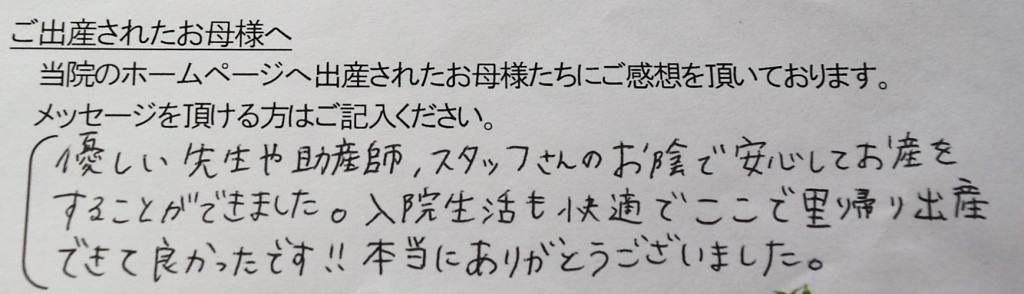 ご出産されたお母様へ
当院のホームページへ出産されたお母様たちにご感想を頂いております。
メッセージを頂ける方はご記入ください。
優しい先生や助産師,スタッフさんのお陰で安心してお産を
することができました。入院生活も快適でここで里帰り出産
できて良かったです!!本当にありがとうございました。